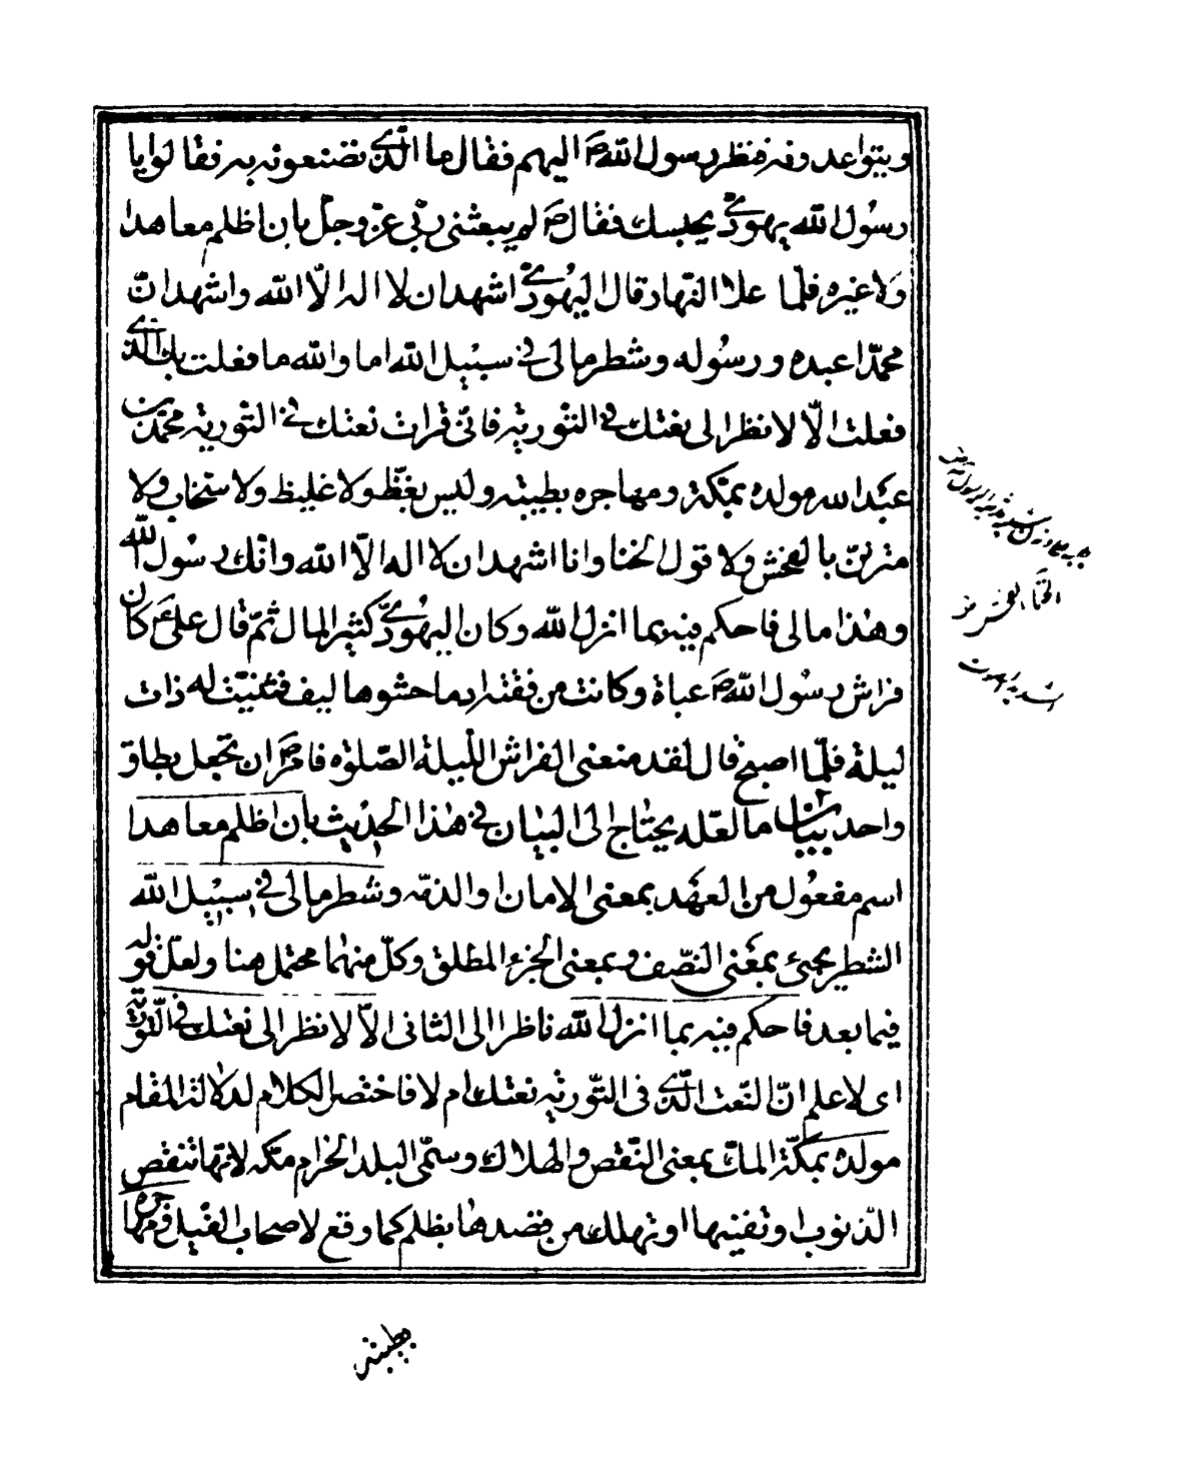 ويتواعدونه فنظر رسول الله ص اليهم فقال ما الذى تصنعونه به فقالوا يا
رسُول الله يهودىّ يحبسك فقال ص لم يبعثنى ربّى عزّ وجلّ بان اظلم معاهدا
ولا غيره فلمّا علا النّهار قال اليهُودىّ اشهد ان لا اله الّا الله واشهد انّ
محمّدا عبده ورسُوله وشطر مالى فى سبيل الله اما والله ما فعلت بك الّذى
فعلت الّا لانظر الى نعتك فى التّورية فانّى قرات نعتك فى التّورية محمّد بن
عبد الله مولده بمكّة ومهاجره بطيبة وليس بفظّ ولا غليظ ولا سخّاب ولا
متزيّن بالفحش ولا قول الخنا وانا اشهد ان لا اله الّا الله وانّك رسُول الله
وهٰذا مالى فاحكم فيه بما انزل الله وكان اليهُودىّ كثير المال ثمّ قال علىّ ع كان
فراش رسُول الله ص عباة وكانت مرفقته ادما حشوها ليف فثنيت له ذات
ليلة فلمّا اصبح قال لقد منعنى الفراش اللّيلة الصّلوٰة فامر ص ان تجعل بطاق
واحد بيان ما لعلّه يحتاج الى البيان فى هٰذا الحديث بان اظلم معاهدا
اسم مفعُول من العهَد بمعنى الامان والذمّه وشطر مالى فى سبيل الله
الشطر يجئ بمعَنى النّصف وبمعنى الجزء المطلق وكلّ منهُما محتمل هنا ولعلّ قوله
فيما بعد فاحكم فيه بما انزل الله ناظر الى الثانى الّا لانظر الى نعتك فى التّورية
اى لاعلم انّ النّعت الّذى فى التّورية نعتك ام لا فاختصر الكلام لدلالة المقام
مولده بمكّة المكّ بمعنى النّقص والهلاك وسمّى البلد الحرام مكّه لانّها تنقص
الذّنوب او تفنيها او تهلك من قصدها بظلم كما وقع لاصحاب الفيل ومهاجره
بطيبة